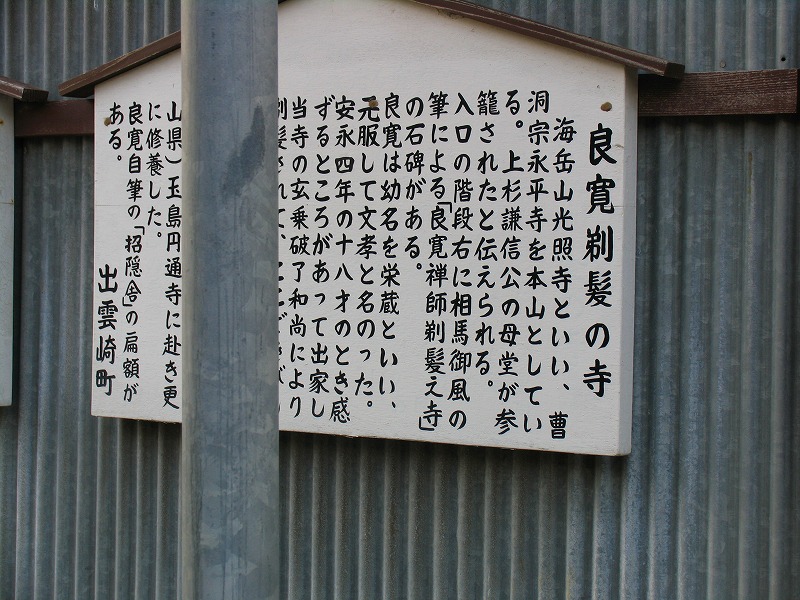 良寛剃髪の寺
海岳山光照寺といい、曹
洞宗永平寺を本山としてい
る。上杉謙信公の母堂が参
籠されたと伝えられる。
入口の階段右に相馬御風の
筆による「良寛禅師剃髪え寺」
の石碑がある。
良寛は幼名を栄蔵といい、
元服して文孝と名のった。
安永四年の十八才のとき感
ずるところがあって出家し
当寺の玄乗破了和尚により
剃髪されて、
山県）玉島円通寺に赴き更
に修養した。
良寛自筆の「招隠舎」の扁額が
ある。
出雲崎町